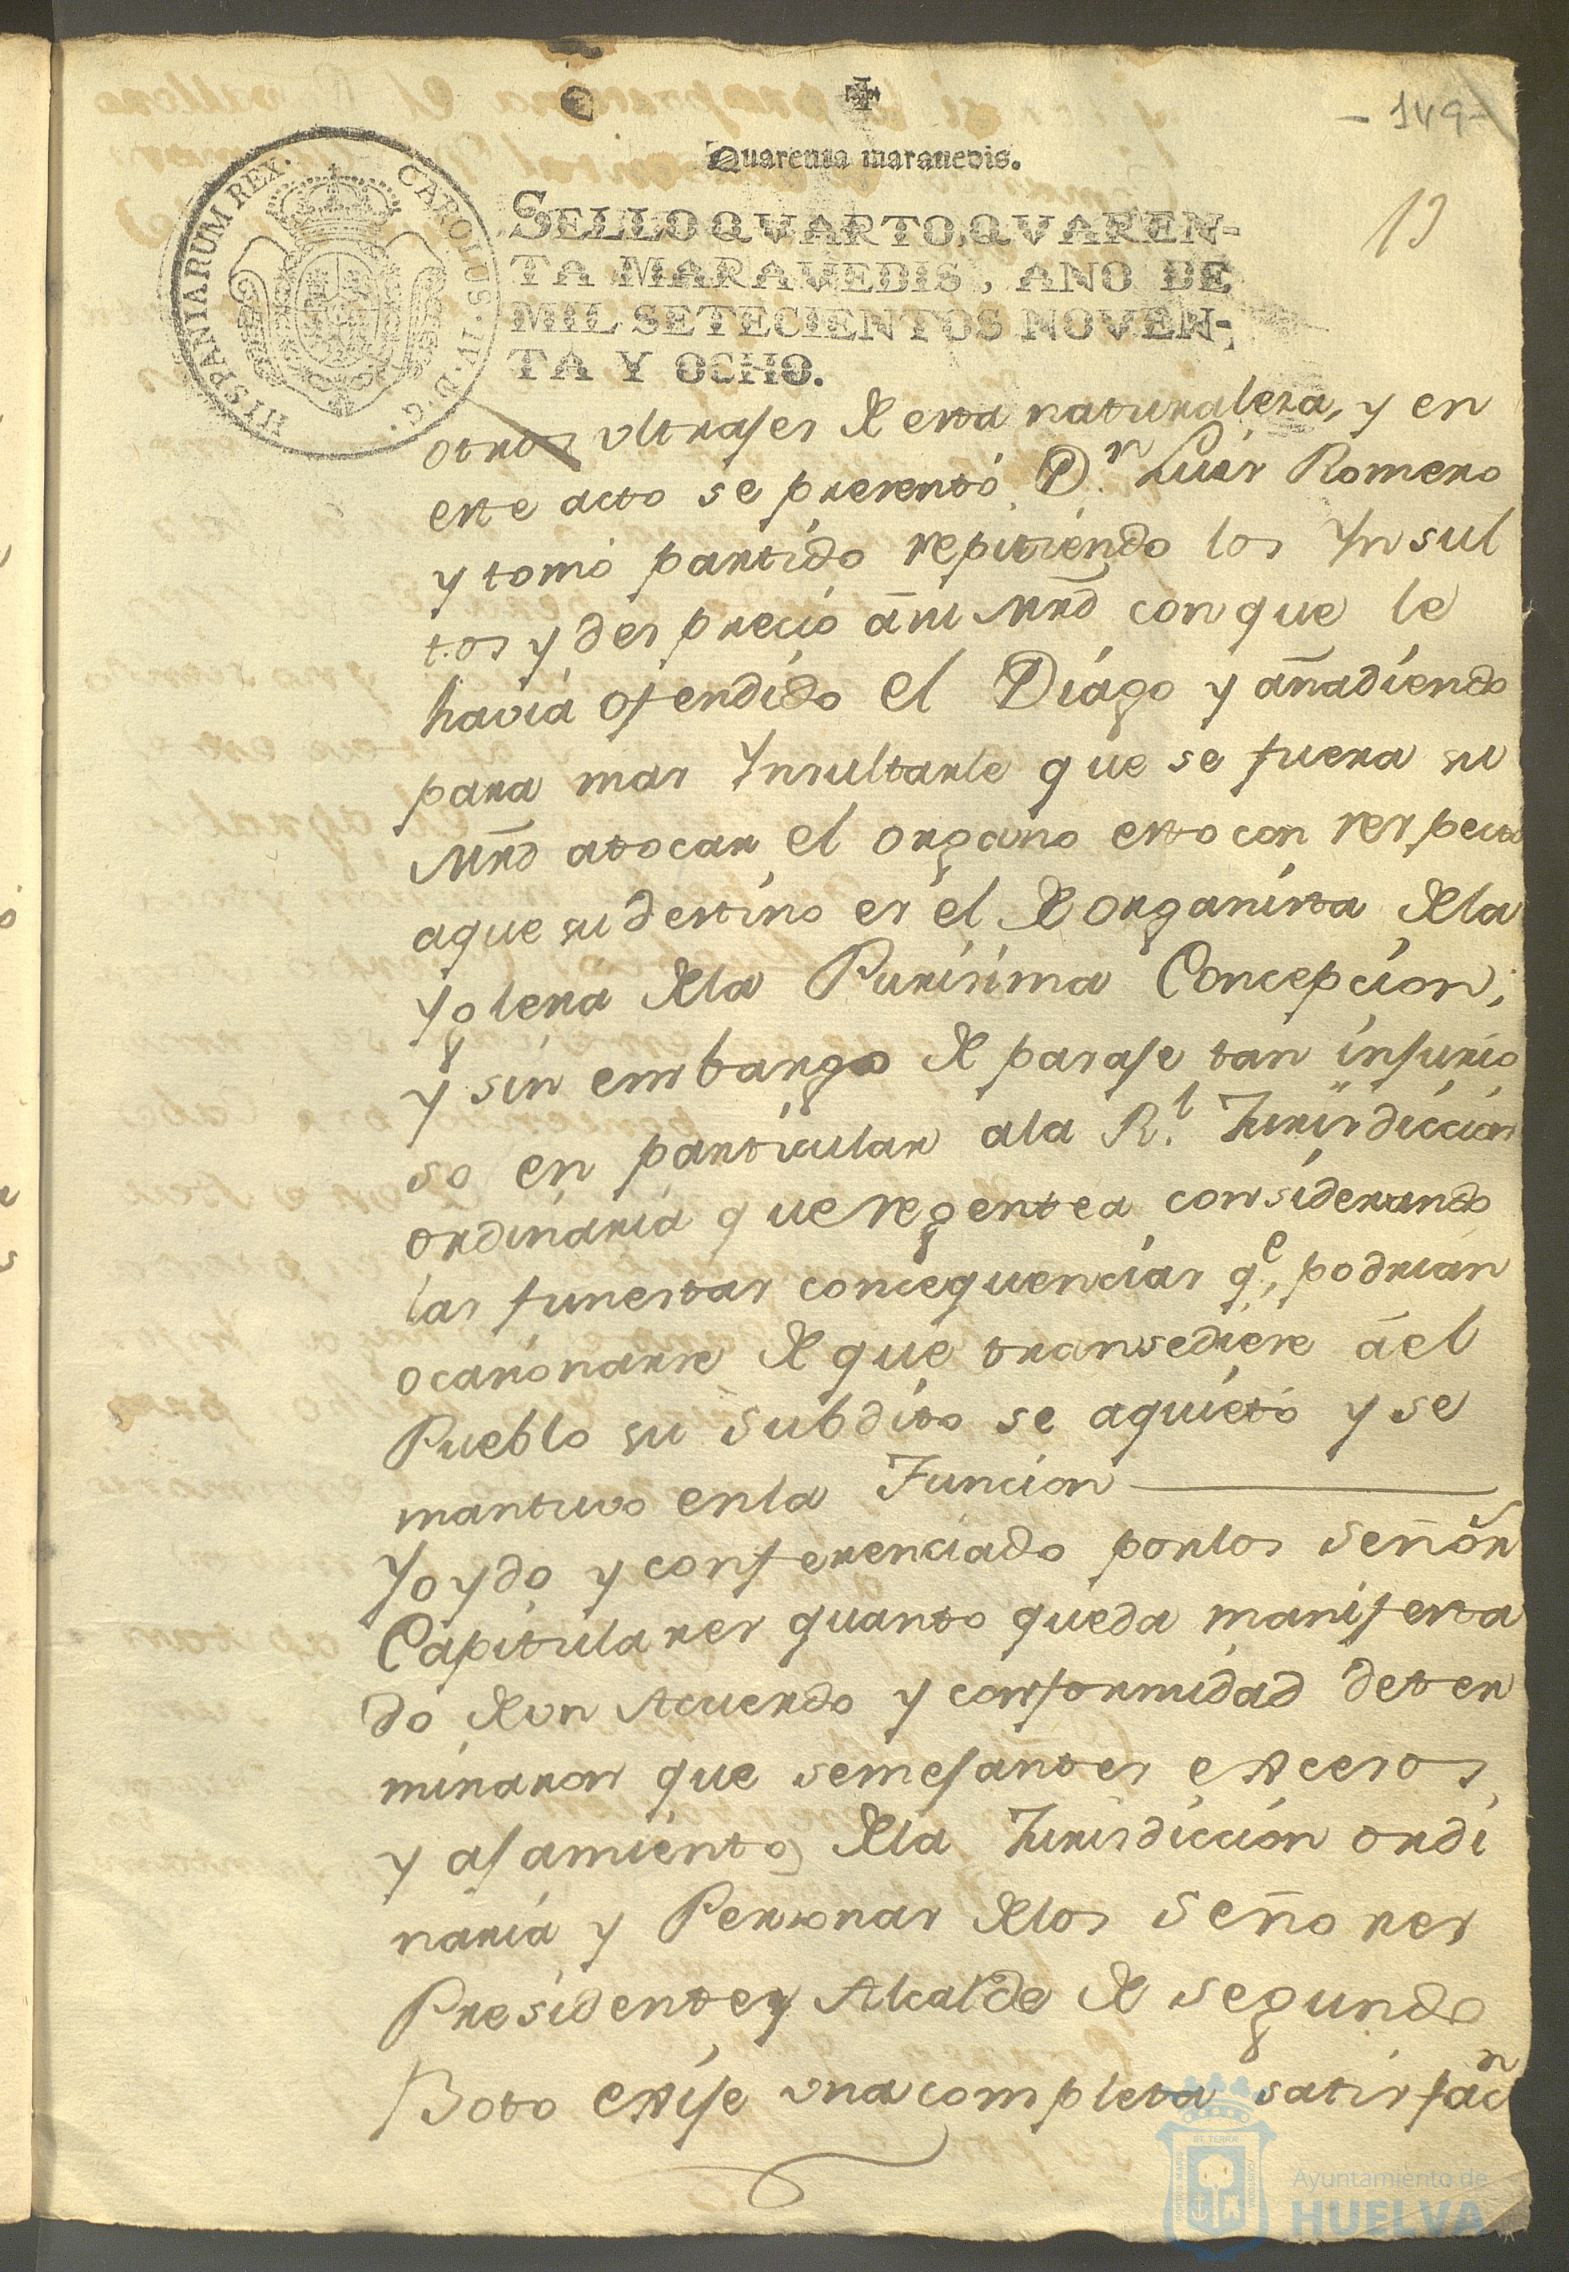 -149-
Quarenta maravedis.
13
HISPANIARUM REX. CAROLUS. IV. D. G.
SELLO QVARTO, QVAREN-
TA MARAVEDIS, AÑO DE
MIL SETECIENTOS NOVEN-
TA Y OCHO.
otros ultrajes de esta naturaleza, y en
este acto se presentó D.n Luis Romero
y tomó partido repitiendo los Ynsul
tos y desprecio á su Mrd con que le
havia ofendido el Diágo y añadiendo
para mas Ynsultarle que se fuera su
Mrd atocar el organo esto con respecto
aque su destino es el de organista dela
Yglesia dela Purisima Concepcion,
y sin embargo de pasaje tan injurio
so en particular ala R.l Jurisdiccion
ordinaria que regentea considerando
las funestas concequencias q.e podrian
ocasionarse de que transediese ael
Pueblo su subdito se aquietó y se
mantuvo enla Funcion
Yoydo y conferenciado porlos Señor
Capitulares quanto queda manifesta
do deun Acuerdo y conformidad deter
minaron que semejantes excesos
y ajamiento dela Jurisdiccion ordi
naria y Personas delos Señores
Presidente y Alcalde de segundo
Boto exije una completa satisfac.n
Ayuntamiento de
HUELVA